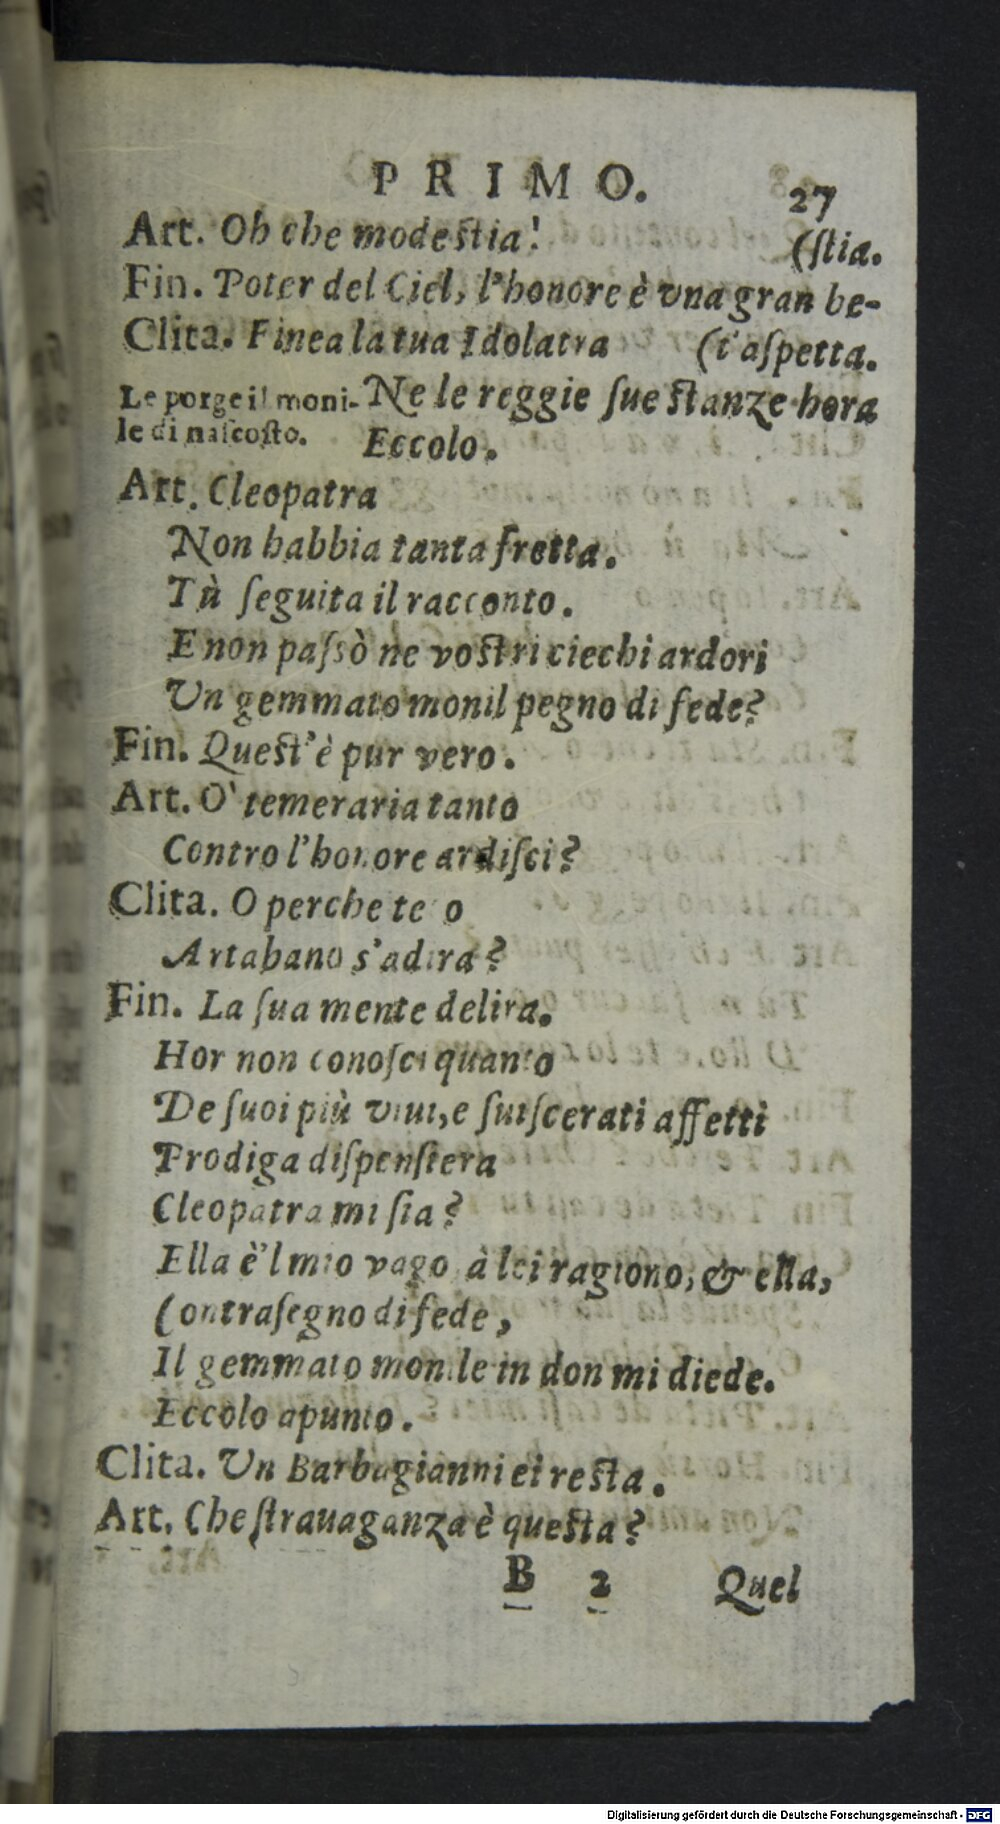 PRIMO. 27
Art. Oh che modestia! (ſtia.
Fin. Poter del Ciel, l'honore è vna gran be-
Clita. Finea la tua Idolatra (t'aſpetta.
Le porge il moni- Ne le reggie ſue stanze hora
le di naſcoſto. Eccolo.
Art. Cleopatra
Non habbia tanta fretta.
Tù ſeguita il racconto.
E non paſsò ne vostri ciechi ardori
Un gemmato monil pegno di fede?
Fin. Quest'è pur vero.
Art. O' temeraria tanto
Contro l'honore ardiſci?
Clita. O perche te o
Artabano s'adira?
Fin. La ſua mente delira.
Hor non conoſci quanto
De ſuoi più viui, e ſuiſcerati affetti
Prodiga diſpenſiera
Cleopatra mi ſia?
Ella è'l mio vago à lei ragiono, & ella,
Contraſegno di fede,
Il gemmato monile in don mi diede.
Eccolo apunto.
Clita. Un Barbagianni ei resta.
Art. Che ſtrauaganza è questa?
B 2 Quel
Digitalisierung gefördert durch die Deutsche Forschungsgemeinschaft - DFG